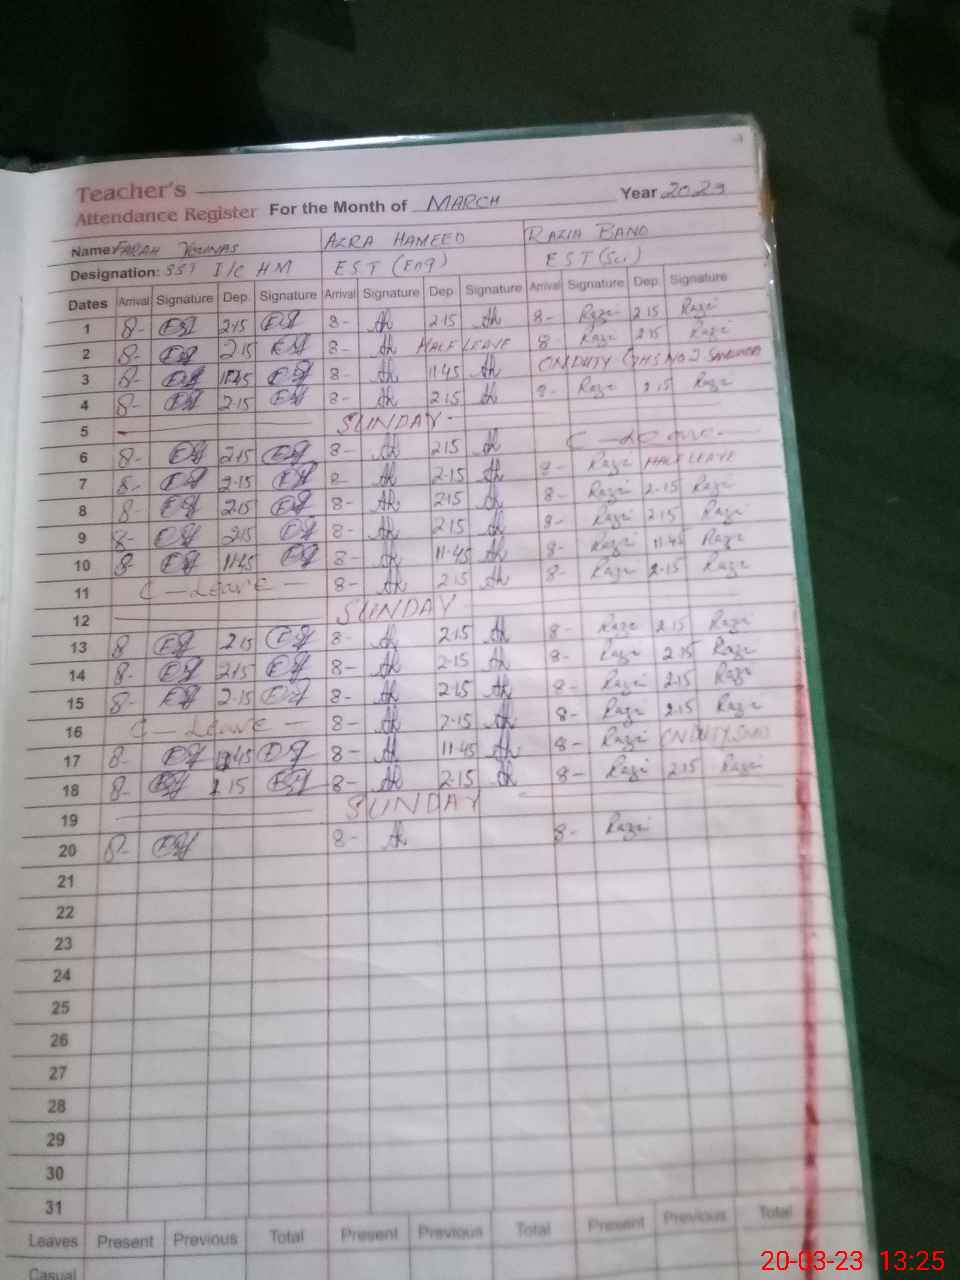 Teacher's
Attendance Register For the Month of MARCH Year 2023
Name: FARAH YOUNAS AZRA HAMEED RAZIA BANO
Designation: SST I/C HM EST (Eng) EST (Sci)
Dates Arrival Signature Dep. Signature Arrival Signature Dep Signature Arrival Signature Dep. Signature
1 8- 2-15 8- Ah 2-15 Ah 8- Razi 2-15 Razi
2 8- 2-15 8- Ah HALF LEAVE 8 Razi 2-15 Razi
3 8- 11-45 8- Ah 11-45 Ah ON DUTY GHS NO 2
4 8- 2-15 8- Ah 2-15 Ah 8- Razi 2-15 Razi
5 SUNDAY -
6 8- 2-15 8- Ah 2-15 Ah C - Leave -
7 8- 2-15 8- Ah 2-15 Ah 8- Razi HALF LEAVE
8 8- 2-15 8- Ah 2-15 Ah 8- Razi 2-15 Razi
9 8- 2-15 8- Ah 2-15 Ah 8- Razi 2-15 Razi
10 8- 11-45 8- Ah 11-45 Ah 8- Razi 11-45 Razi
11 C - Leave - 8- Ah 2-15 Ah 8- Razi 2-15 Razi
12 SUNDAY
13 8 2-15 8- Ah 2-15 Ah 8- Razi 2-15 Razi
14 8- 2-15 8- Ah 2-15 Ah 8- Razi 2-15 Razi
15 8- 2-15 8- Ah 2-15 Ah 8- Razi 2-15 Razi
16 C - Leave - 8- Ah 2-15 Ah 8- Razi 2-15 Razi
17 8- 11-45 8- Ah 11-45 Ah 8- Razi ON DUTY
18 8- 2-15 8- Ah 2-15 Ah 8- Razi 2-15 Razi
19 SUNDAY
20 8- 8- Ah 8- Razi
21
22
23
24
25
26
27
28
29
30
31
Leaves Present Previous Total Present Previous Total Present Previous Total
Casual
20-03-23 13:25